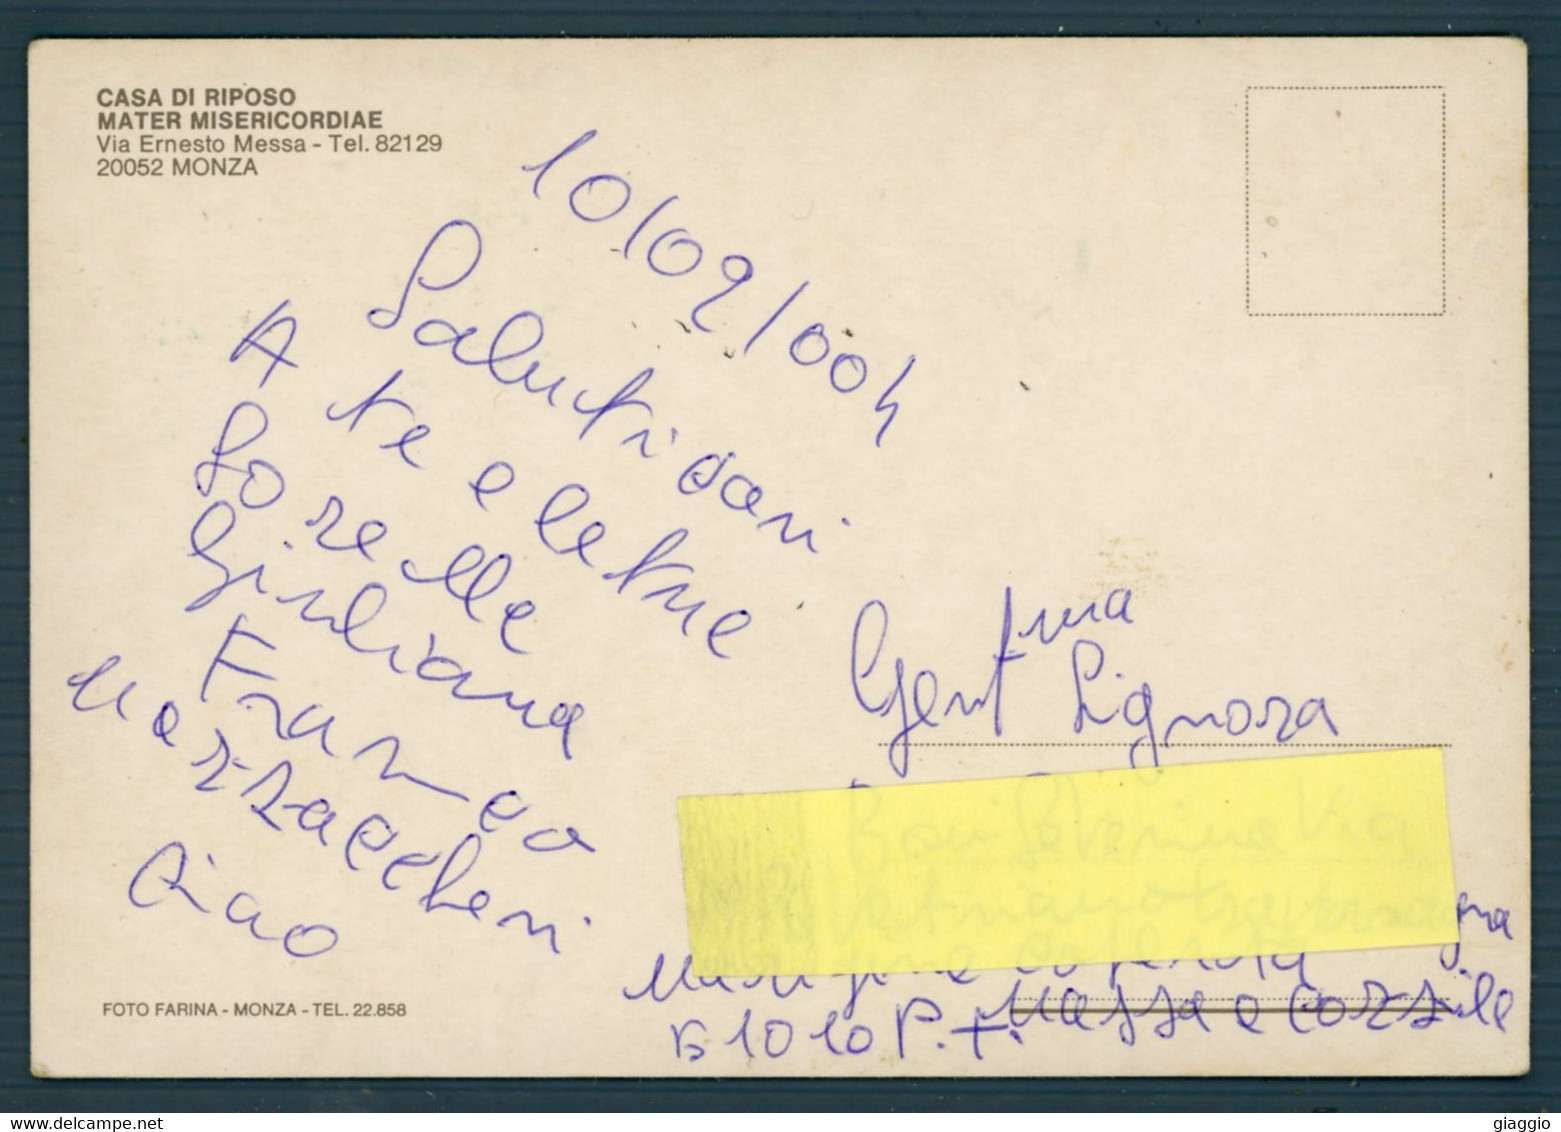 CASA DI RIPOSO
MATER MISERICORDIAE
Via Ernesto Messa - Tel. 82129
20052 MONZA
10/02/004
Saluti cari
A te e le tue
Sorelle
Giuliana
Franco
Mazzaccheri
Ciao
Gent.ma
Signora
51010 P.T. Massa e Cozzile
FOTO FARINA - MONZA - TEL. 22.858
giaggio